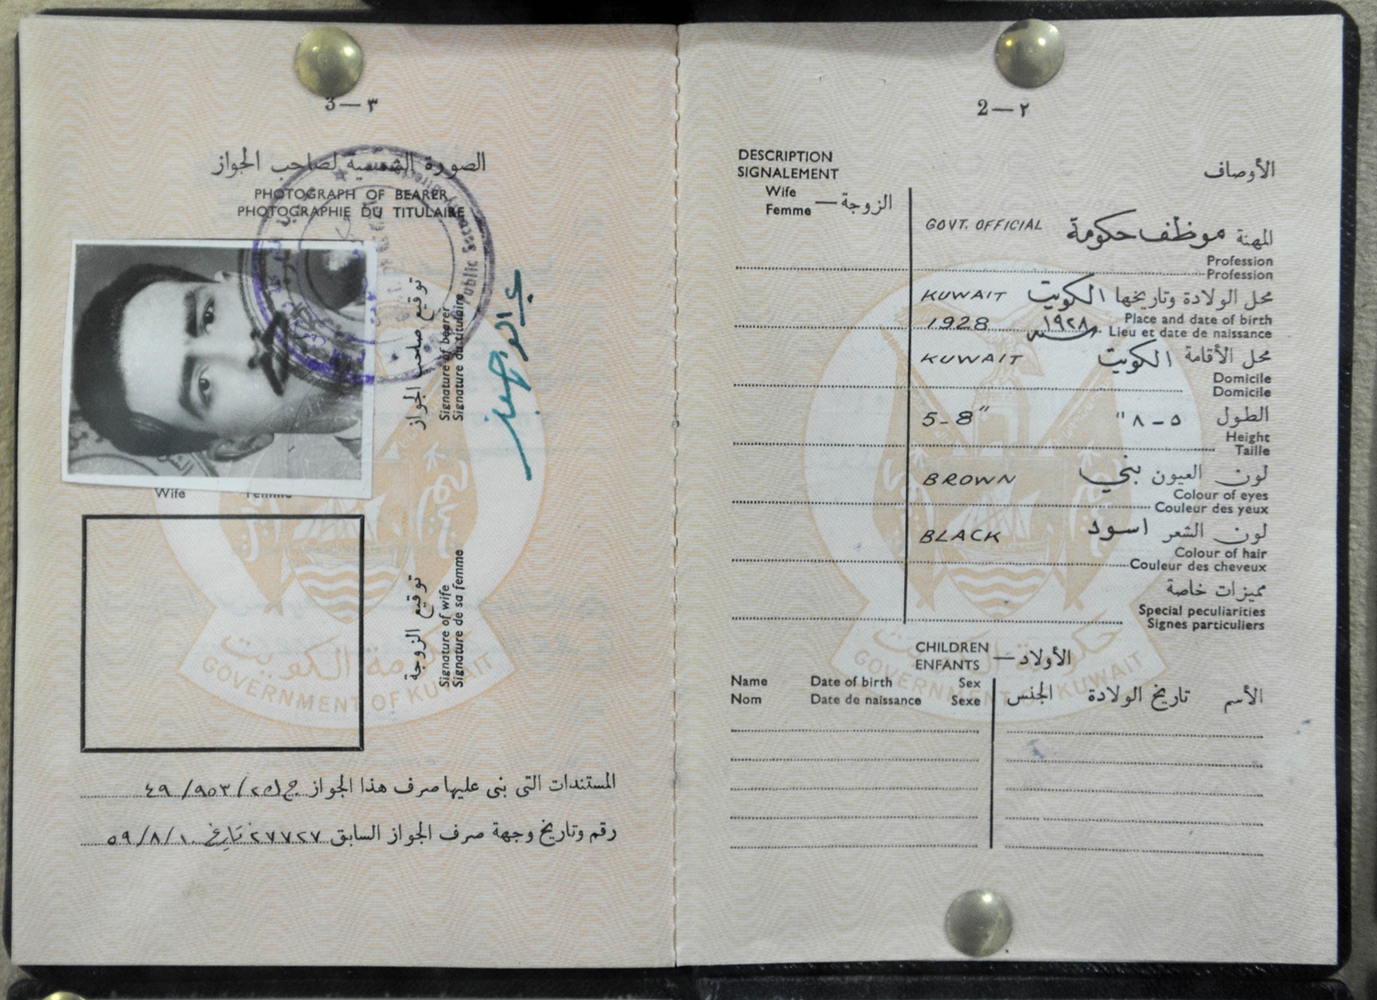 3 — ٣
الصورة الشمسية لصاحب الجواز
PHOTOGRAPH OF BEARER
PHOTOGRAPHIE DU TITULAIRE
Public Security
توقيع صاحب الجواز
Signature of bearer
Signature du titulaire
Wife Femme
توقيع الزوجة
Signature of wife
Signature de sa femme
حكومة الكويت
GOVERNMENT OF KUWAIT
المستندات التى بنى عليها صرف هذا الجواز
رقم وتاريخ وجهة صرف الجواز السابق ٢٧٧٢٧ تاريخ ٥٩/٨/١٠
2 — ٢
DESCRIPTION الأوصاف
SIGNALEMENT
Wife
Femme — الزوجة
GOVT. OFFICIAL موظف حكومة المهنة
Profession
Profession
KUWAIT الكويت محل الولادة وتاريخها
Place and date of birth
1928 سنة ١٩٢٨ Lieu et date de naissance
KUWAIT الكويت محل الأقامة
Domicile
Domicile
5-8" ٥ - ٨" الطول
Height
Taille
BROWN بني لون العيون
Colour of eyes
Couleur des yeux
BLACK اسود لون الشعر
Colour of hair
Couleur des cheveux
مميزات خاصة
Special peculiarities
Signes particuliers
حكومة الكويت
GOVERNMENT OF KUWAIT
CHILDREN
ENFANTS — الأولاد
Name Date of birth Sex
Nom Date de naissance Sexe الجنس تاريخ الولادة الأسم